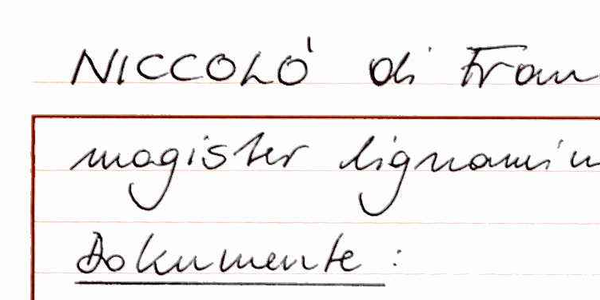 NICCOLÒ di Fran
magister lignamin
Dokumente :